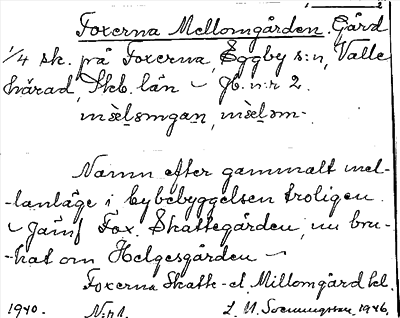 Foxerna Mellomgården. Gård
1/4 sk. på Foxerna, Eggby s:n, Valle
härad, Skb. län – Jb. n:r 2.
Namn efter gammalt mel-
-lanläge i bybebyggelsen troligen.
– Jämf Fox. Skattegården, nu bru-
-kat om Helgesgården –
Foxerna Skatte- et. Millomgård
1940. L. M. 1946.